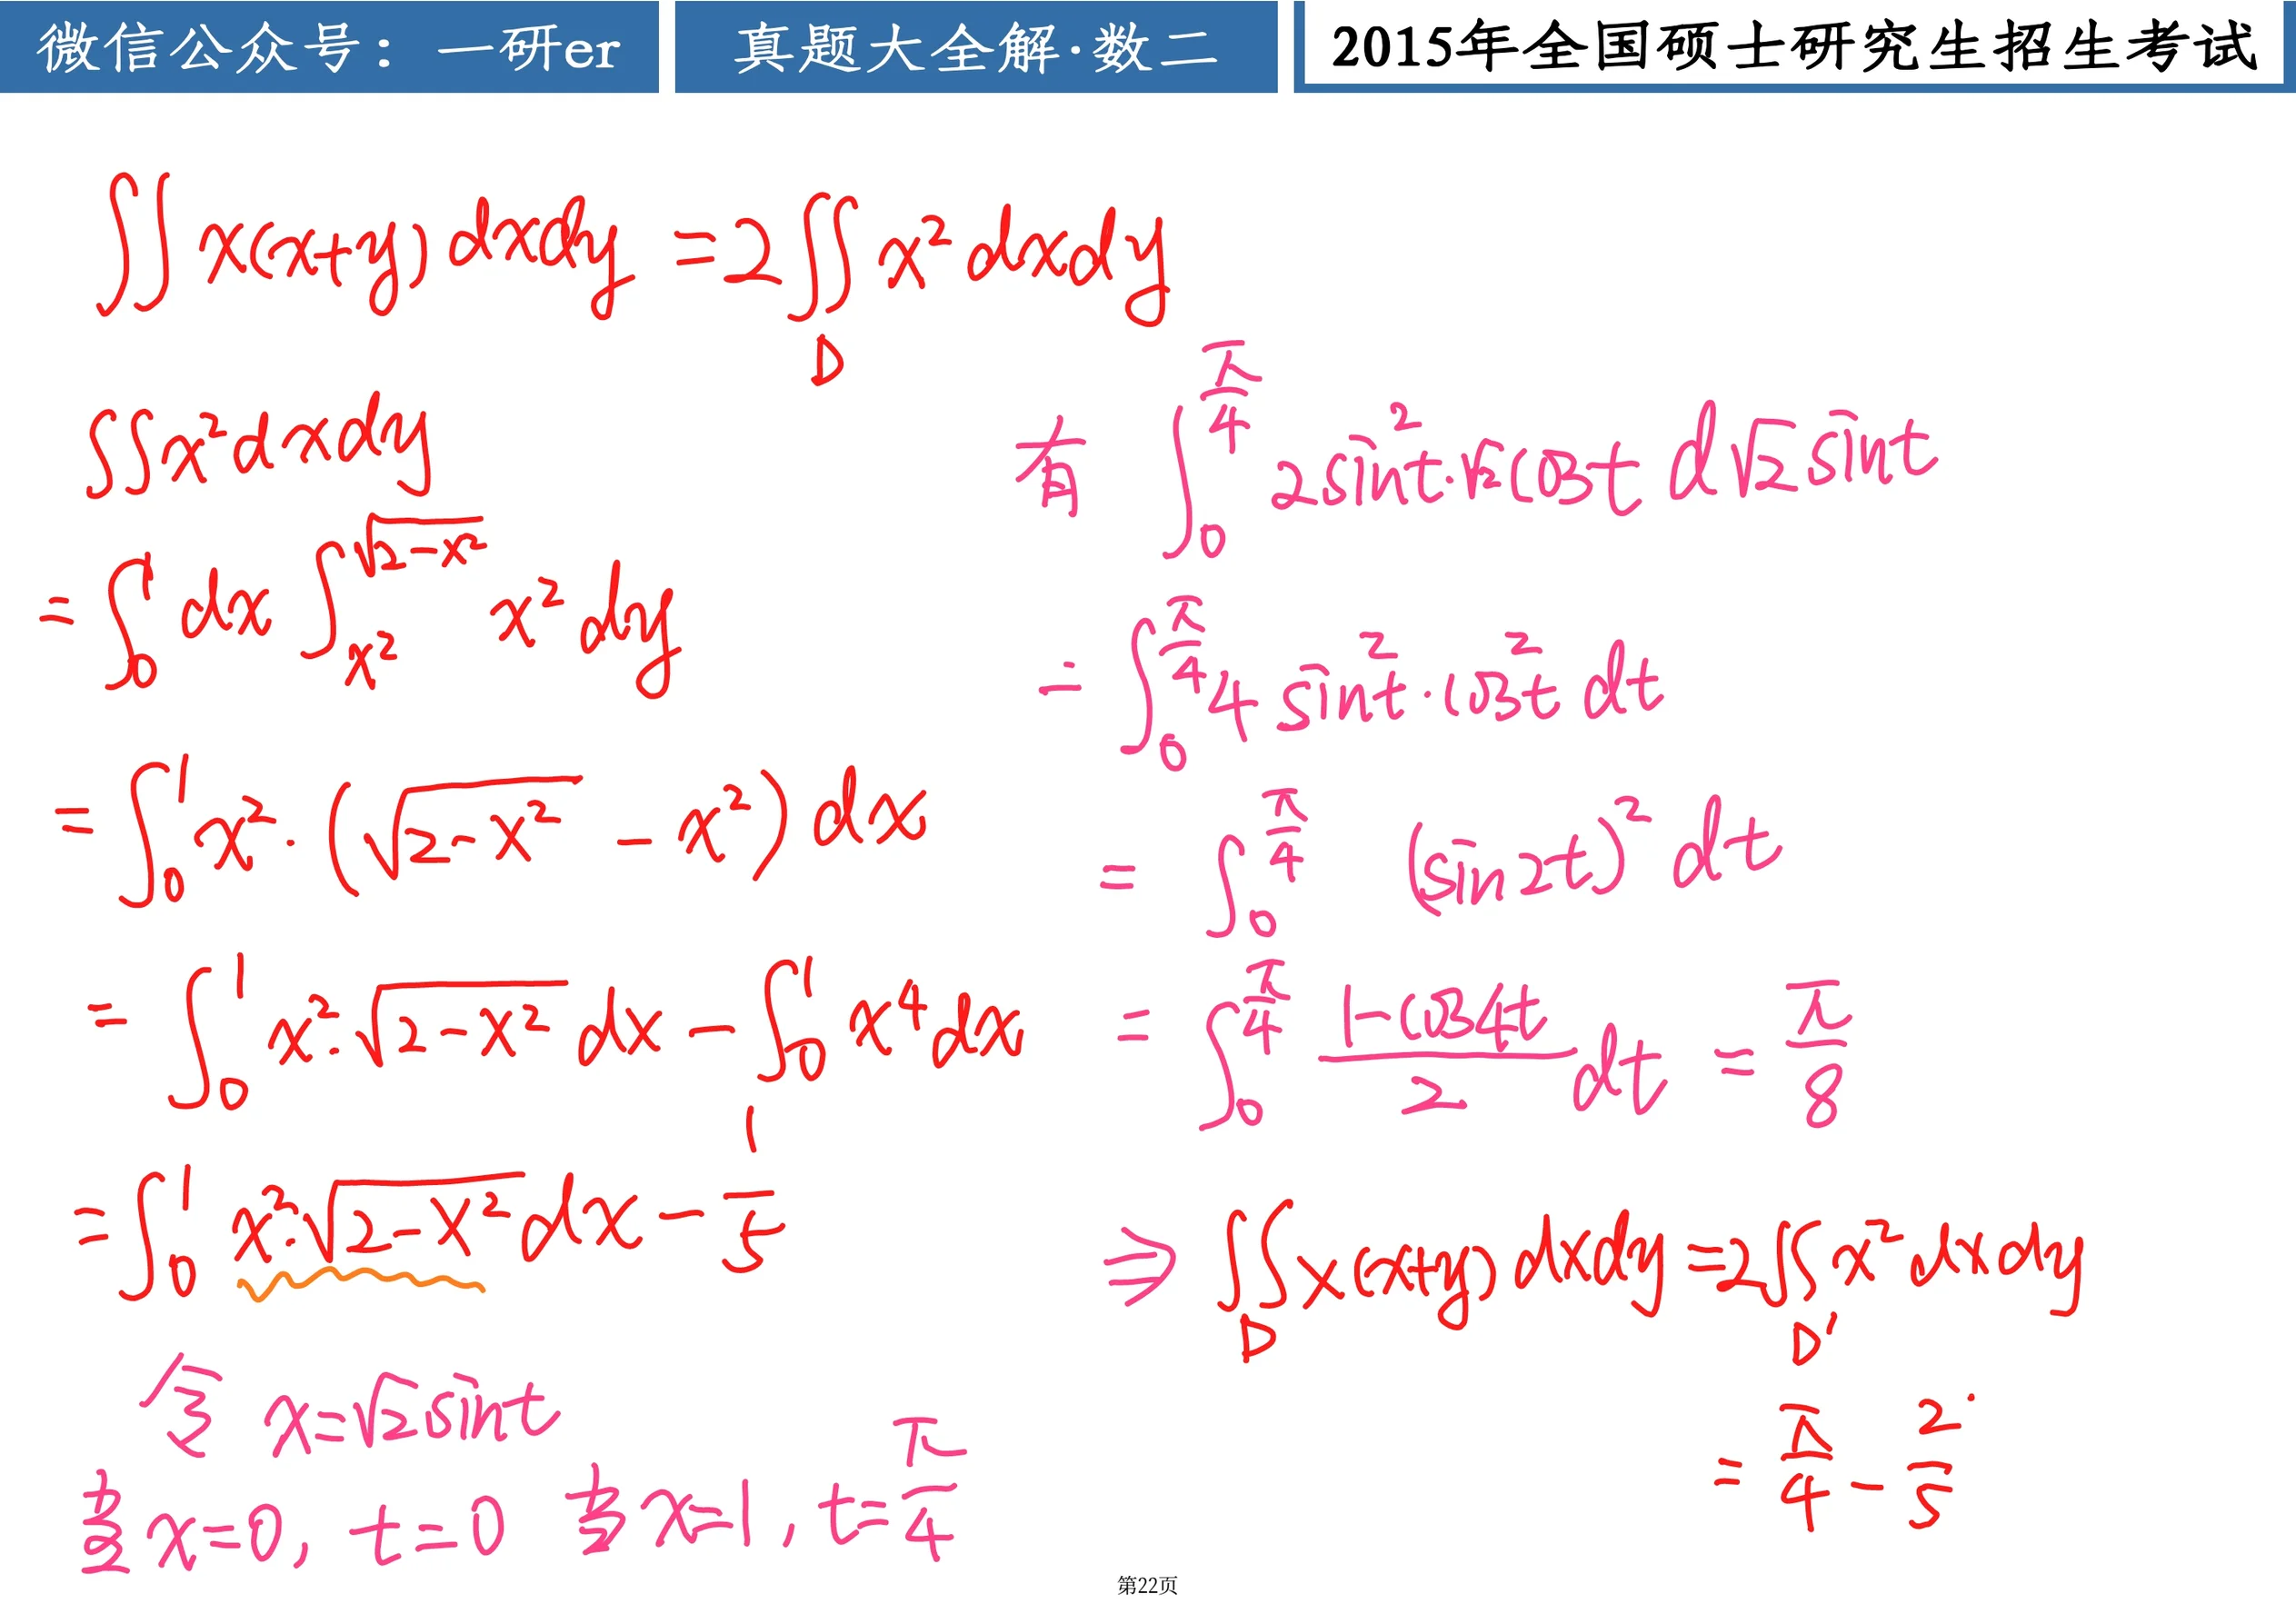 微信公众号：一研er
真题大全解·数二
2015年全国硕士研究生招生考试
∬ x(x+y) dxdy = 2∬_D x² dxdy
∬x²dxdy
= ∫₀¹ dx ∫_{x²}^{√(2-x²)} x² dy
= ∫₀¹ x²·(√(2-x²) - x²) dx
= ∫₀¹ x²·√(2-x²) dx - ∫₀¹ x⁴ dx
= ∫₀¹ x²·√(2-x²) dx - 1/5
令 x=√2 sint
当 x=0, t=0 当 x=1, t=π/4
有 ∫₀^{π/4} 2sin²t·√2cost d√2sint
= ∫₀^{π/4} 4 sin²t·cos²t dt
= ∫₀^{π/4} (sin2t)² dt
= ∫₀^{π/4} (1-cos4t)/2 dt = π/8
⇒ ∬_D x(x+y) dxdy = 2∬_{D'} x² dxdy
= π/4 - 2/5
第22页